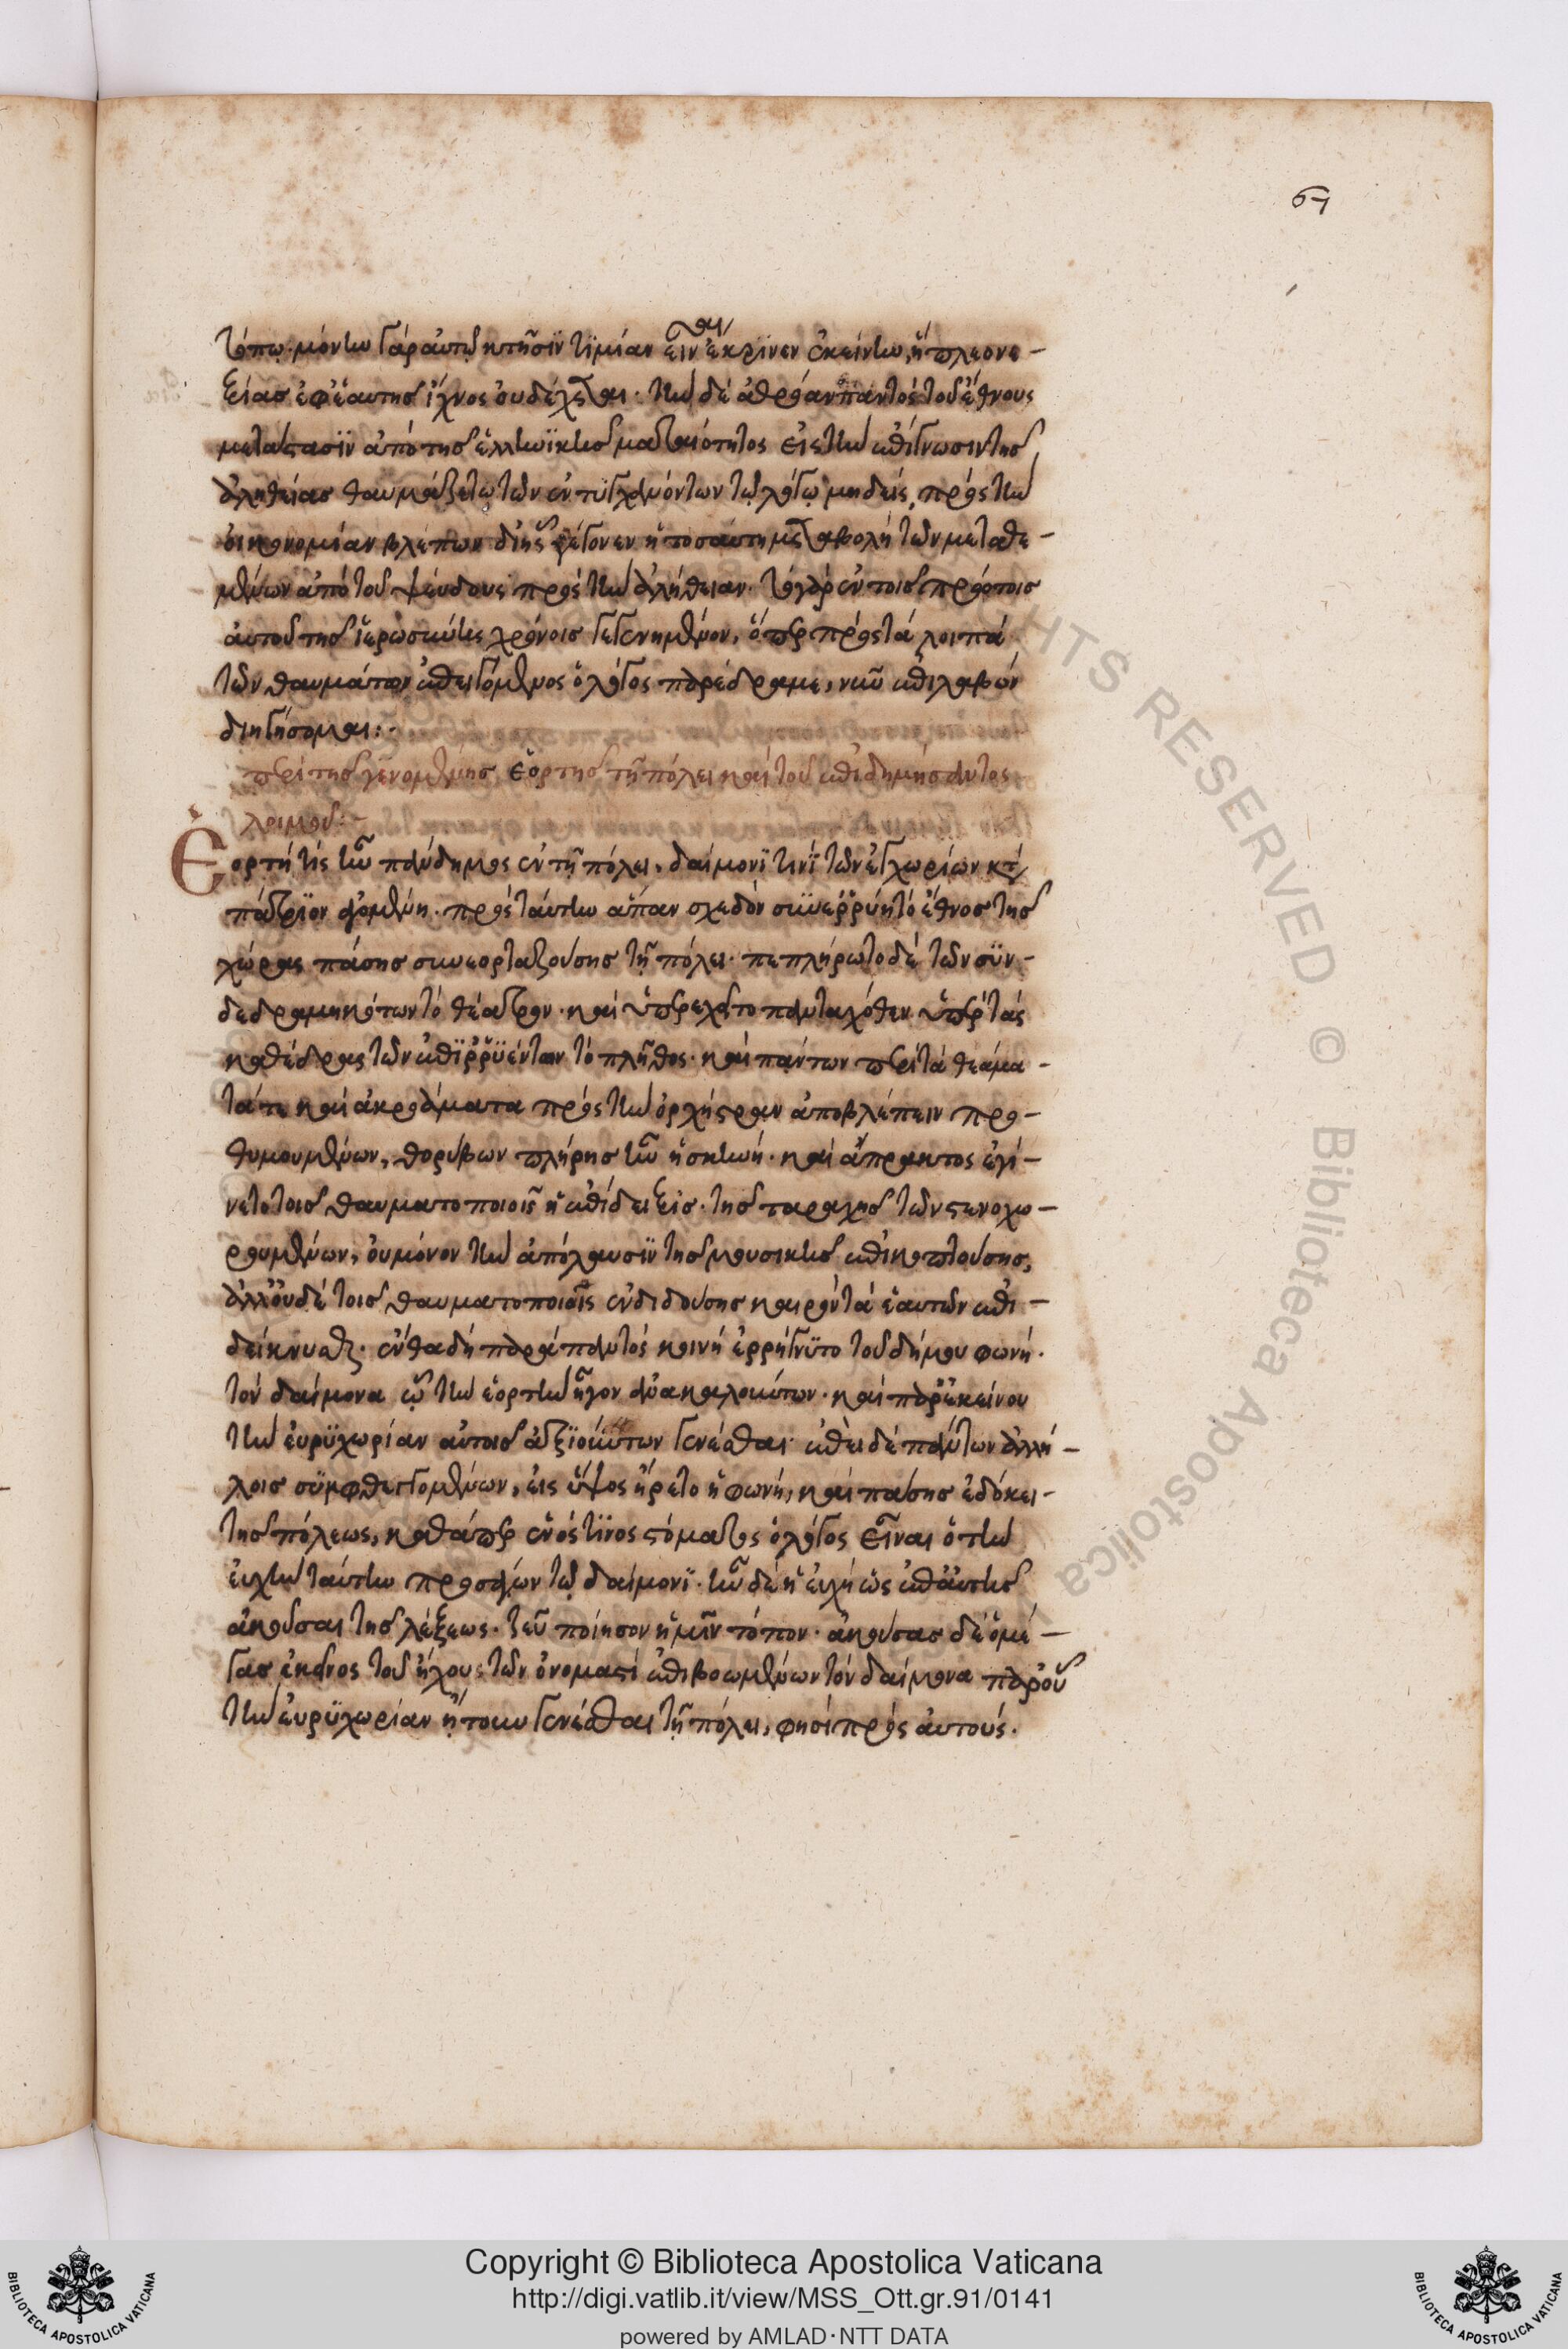 67
τόπω· μόνην γὰρ αὐτῷ κτῆσιν τιμίαν εἶναι ἔκρινεν ἐκείνην, ἣ πλεονε-
ξίας ἐφ' ἑαυτῆς ἴχνος οὐ δέχεται. τὴν δὲ ἀθρόαν παντὸς τοῦ ἔθνους
μετάστασιν ἀπὸ τῆς ἑλληνικῆς ματαιότητος εἰς τὴν ἐπίγνωσιν τῆς
ἀληθείας θαυμαζέτω τῶν ἐντυγχανόντων τῷ λόγῳ μηδεὶς, πρὸς τὴν
οἰκονομίαν βλέπων δι' ἧς γέγονεν ἡ τοσαύτη μεταβολὴ τῶν μεταθε-
μένων ἀπὸ τοῦ ψεύδους πρὸς τὴν ἀλήθειαν. τὸ γὰρ ἐν τοῖς πρώτοις
αὐτοῦ τῆς ἱερωσύνης χρόνοις γεγενημένον, ὅπερ πρὸς τὰ λοιπὰ
τῶν θαυμάτων ἐπειγόμενος ὁ λόγος παρέδραμε, νῦν ἐπιλαβὼν
διηγήσομαι:-
περὶ τῆς γενομένης ἑορτῆς τῇ πόλει καὶ τοῦ ἐπιδημήσαντος
λοιμοῦ:-
Ἑορτή τις ἦν πάνδημος ἐν τῇ πόλει, δαίμονί τινι τῶν ἐγχωρίων κατὰ
πάτριον ἀγομένη. πρὸς ταύτην ἅπαν σχεδὸν συνερρύη τὸ ἔθνος τῆς
χώρας πάσης συνεορταζούσης τῇ πόλει. πεπλήρωτο δὲ τῶν συν-
δεδραμηκότων τὸ θέατρον. καὶ ὑπερεχεῖτο πανταχόθεν ὑπὲρ τὰς
καθέδρας τῶν ἐπιρρυέντων τὸ πλῆθος. καὶ πάντων περὶ τὰ θεάμα-
τά τε καὶ ἀκροάματα πρὸς τὴν ὀρχήστραν ἀποβλέπειν προ-
θυμουμένων, θορύβων πλήρης ἦν ἡ σκηνή. καὶ ἄπρακτος ἐγί-
νετο τοῖς θαυματοποιοῖς ἡ ἐπίδειξις. τῆς ταραχῆς τῶν στενοχω-
ρουμένων, οὐ μόνον τὴν ἀπόλαυσιν τῆς μουσικῆς ἐπικοπτούσης,
ἀλλ' οὐδὲ τοῖς θαυματοποιοῖς ἐνδιδούσης καιρὸν τὰ ἑαυτῶν ἐπι-
δείκνυσθαι. ἔνθα δὴ παρὰ παντὸς κοινὴ ἐρρήγνυτο τοῦ δήμου φωνή.
τὸν δαίμονα ᾧ τὴν ἑορτὴν ἦγον ἀνακαλούντων. καὶ παρ' ἐκείνου
τὴν εὐρυχωρίαν αὐτοῖς ἀξιούντων γενέσθαι. ἐπεὶ δὲ πάντων ἀλλή-
λοις συμφθεγγομένων, εἰς ὕψος ᾔρετο ἡ φωνή, καὶ πάσης ἐδόκει
τῆς πόλεως, καθάπερ ἑνός τινος στόματος ὁ λόγος εἶναι ὁ τὴν
εὐχὴν ταύτην προσάγων τῷ δαίμονι. ἦν δὲ ἡ εὐχὴ ὡς ἐπ' αὐτῆς
ἀκοῦσαι τῆς λέξεως. Ζεῦ ποίησον ἡμῖν τόπον. ἀκούσας δὲ ὁ μέ-
γας ἐκεῖνος τοῦ ἤχους τῶν ὀνομαστὶ ἐπιβοωμένων τὸν δαίμονα παρ' οὗ
τὴν εὐρυχωρίαν ᾔτουν γενέσθαι τῇ πόλει, φησὶ πρὸς αὐτούς.
RIGHTS RESERVED © Biblioteca Apostolica
Copyright © Biblioteca Apostolica Vaticana
http://digi.vatlib.it/view/MSS_Ott.gr.91/0141
powered by AMLAD·NTT DATA
BIBLIOTECA APOSTOLICA VATICANA
BIBLIOTECA APOSTOLICA VATICANA